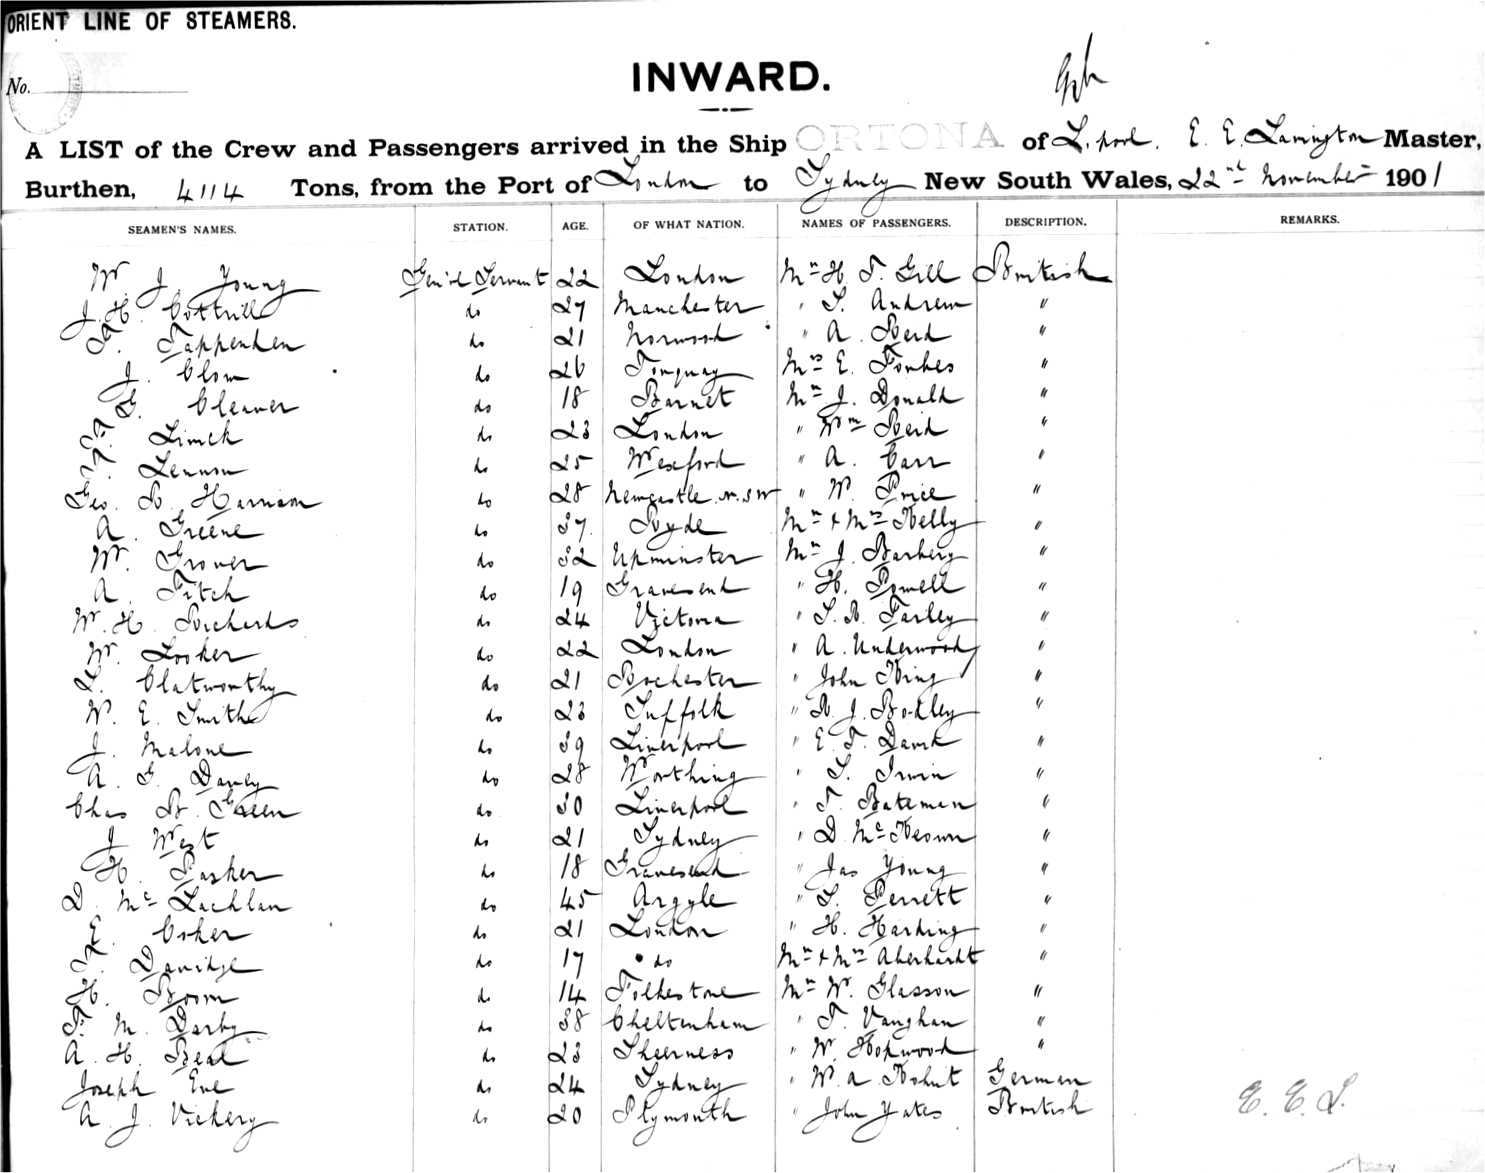 ORIENT LINE OF STEAMERS.
No.
INWARD.
A LIST of the Crew and Passengers arrived in the Ship ORTONA of L.pool. E. E. Lamington Master,
Burthen, 4114 Tons, from the Port of London to Sydney New South Wales, 22nd November 1901
SEAMEN'S NAMES. STATION. AGE. OF WHAT NATION. NAMES OF PASSENGERS. DESCRIPTION. REMARKS.
W. J. Young Gen'l Servant 22 London Mr H. T. Gill British
J. H. Cottrill do 27 Manchester " S. Andrew "
F. Tappenden do 21 Norwood " A. Reid "
J. Clow do 26 Torquay Mrs E. Forbes "
G. Cleaver do 18 Barnet Mr J. Donald "
F. Limck do 23 London " Wm Reid "
F. Lennon do 25 Wexford " A. Carr "
Geo. R. Harrison do 28 Newcastle N.S.W " W. Price "
A. Greene do 37 Ryde Mr & Mrs Kelly "
W. Grover do 32 Upminster Mr J. Barbery "
A. Fitch do 19 Gravesend " H. Powell "
W. H. Richards do 24 Victoria " S. R. Farley "
W. Looker do 22 London " A. Underwood "
L. Clatworthy do 21 Rochester " John King "
W. E. Smith do 23 Suffolk " R. J. Bokley "
J. Malone do 39 Liverpool " E. T. "
A. G. Davey do 28 Worthing " S. Irwin "
Chas R. Green do 30 Liverpool " T. Bateman "
J West do 21 Sydney " D. McKeown "
H. Pasker do 18 Gravesend " Jas Young "
D. McLachlan do 45 Argyle " S. Perrett "
E. Coker do 21 London " H. Harding "
F. Davidge do 17 do Mr & Mrs Aberhardt "
H. Broom do 14 Folkestone Mr W. Glasson "
F. M. Darby do 38 Cheltenham " T. Vaughan "
A. H. Beal do 23 Sheerness " W. Hopwood "
Joseph Eve do 24 Sydney " W. A. Kohut German
A. J. Vickery do 20 Plymouth " John Yates British
E. E. L.